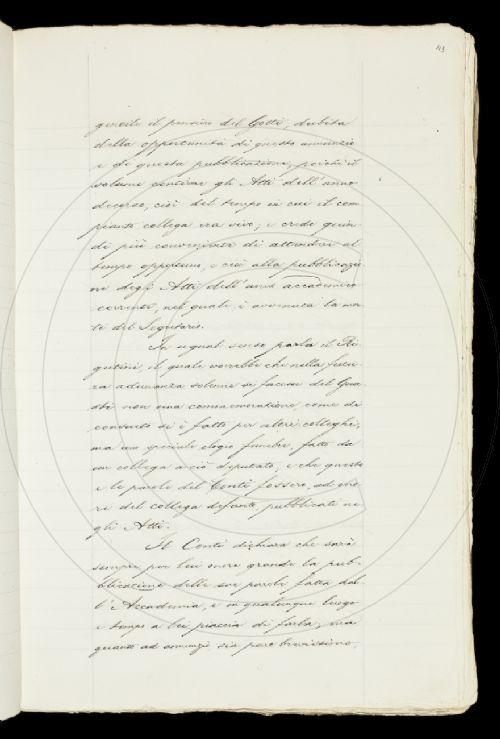 43
gentile il pensiero del Gotti, dubita
della opportunità di questo annunzio
e di questa pubblicazione, poichè il
volume contiene gli Atti dell'anno
decorso, cioè del tempo in cui il com
pianto collega era vivo; e crede quin
di più conveniente di attendere al
tempo opportuno, e cioè alla pubblicazio
ne degli Atti dell'anno accademico
corrente, nel quale è avvenuta la mor
te del Segretario.
In ugual senso parla il Ri
gutini, il quale vorrebbe che nella futu
ra adunanza solenne si facesse del Gua
sti non una commemorazione, come di
consueto si è fatto per altri colleghi,
ma un speciale elogio funebre, fatto da
un collega a ciò deputato; e che questo
e le parole del Conti fossero, ad ono
re del collega defunto, pubblicati ne
gli Atti.
Il Conti dichiara che sarà
sempre per lui onore grande la pub-
blicazione delle sue parole fatta dal
l'Accademia, e in qualunque luogo
e tempo a lei piaccia di farla; ma
quanto ad annunzi sia pure brevissimo,